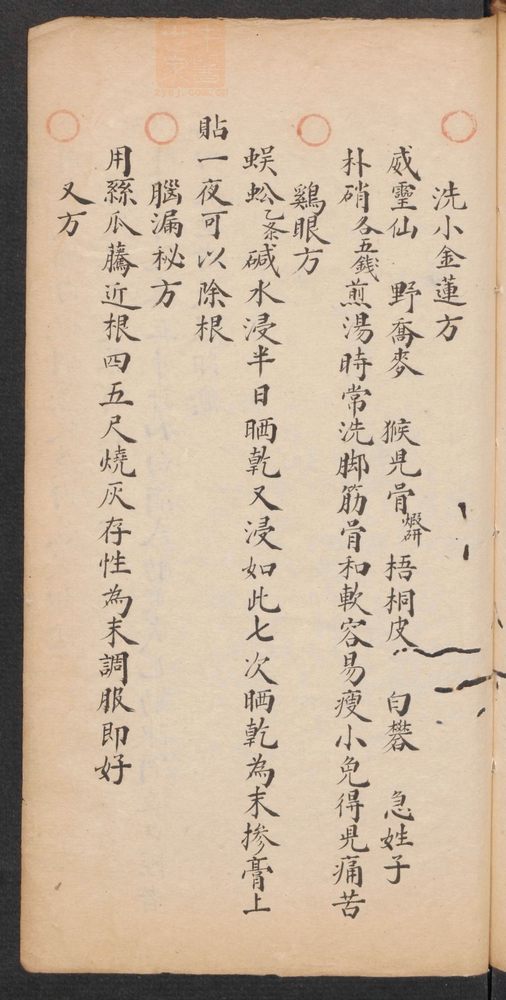 洗小金蓮方
威靈仙　野喬麥　猴児骨煅研　梧桐皮　白礬　急姓子
朴硝各五錢煎湯時常洗脚筋骨和軟容易瘦小免得児痛苦
鷄眼方
蜈蚣乙条碱水浸半日晒乾又浸如此七次晒乾為末摻膏上
貼一夜可以除根
腦漏秘方
用絲瓜藤近根四五尺燒灰存性為末調服即好
又方